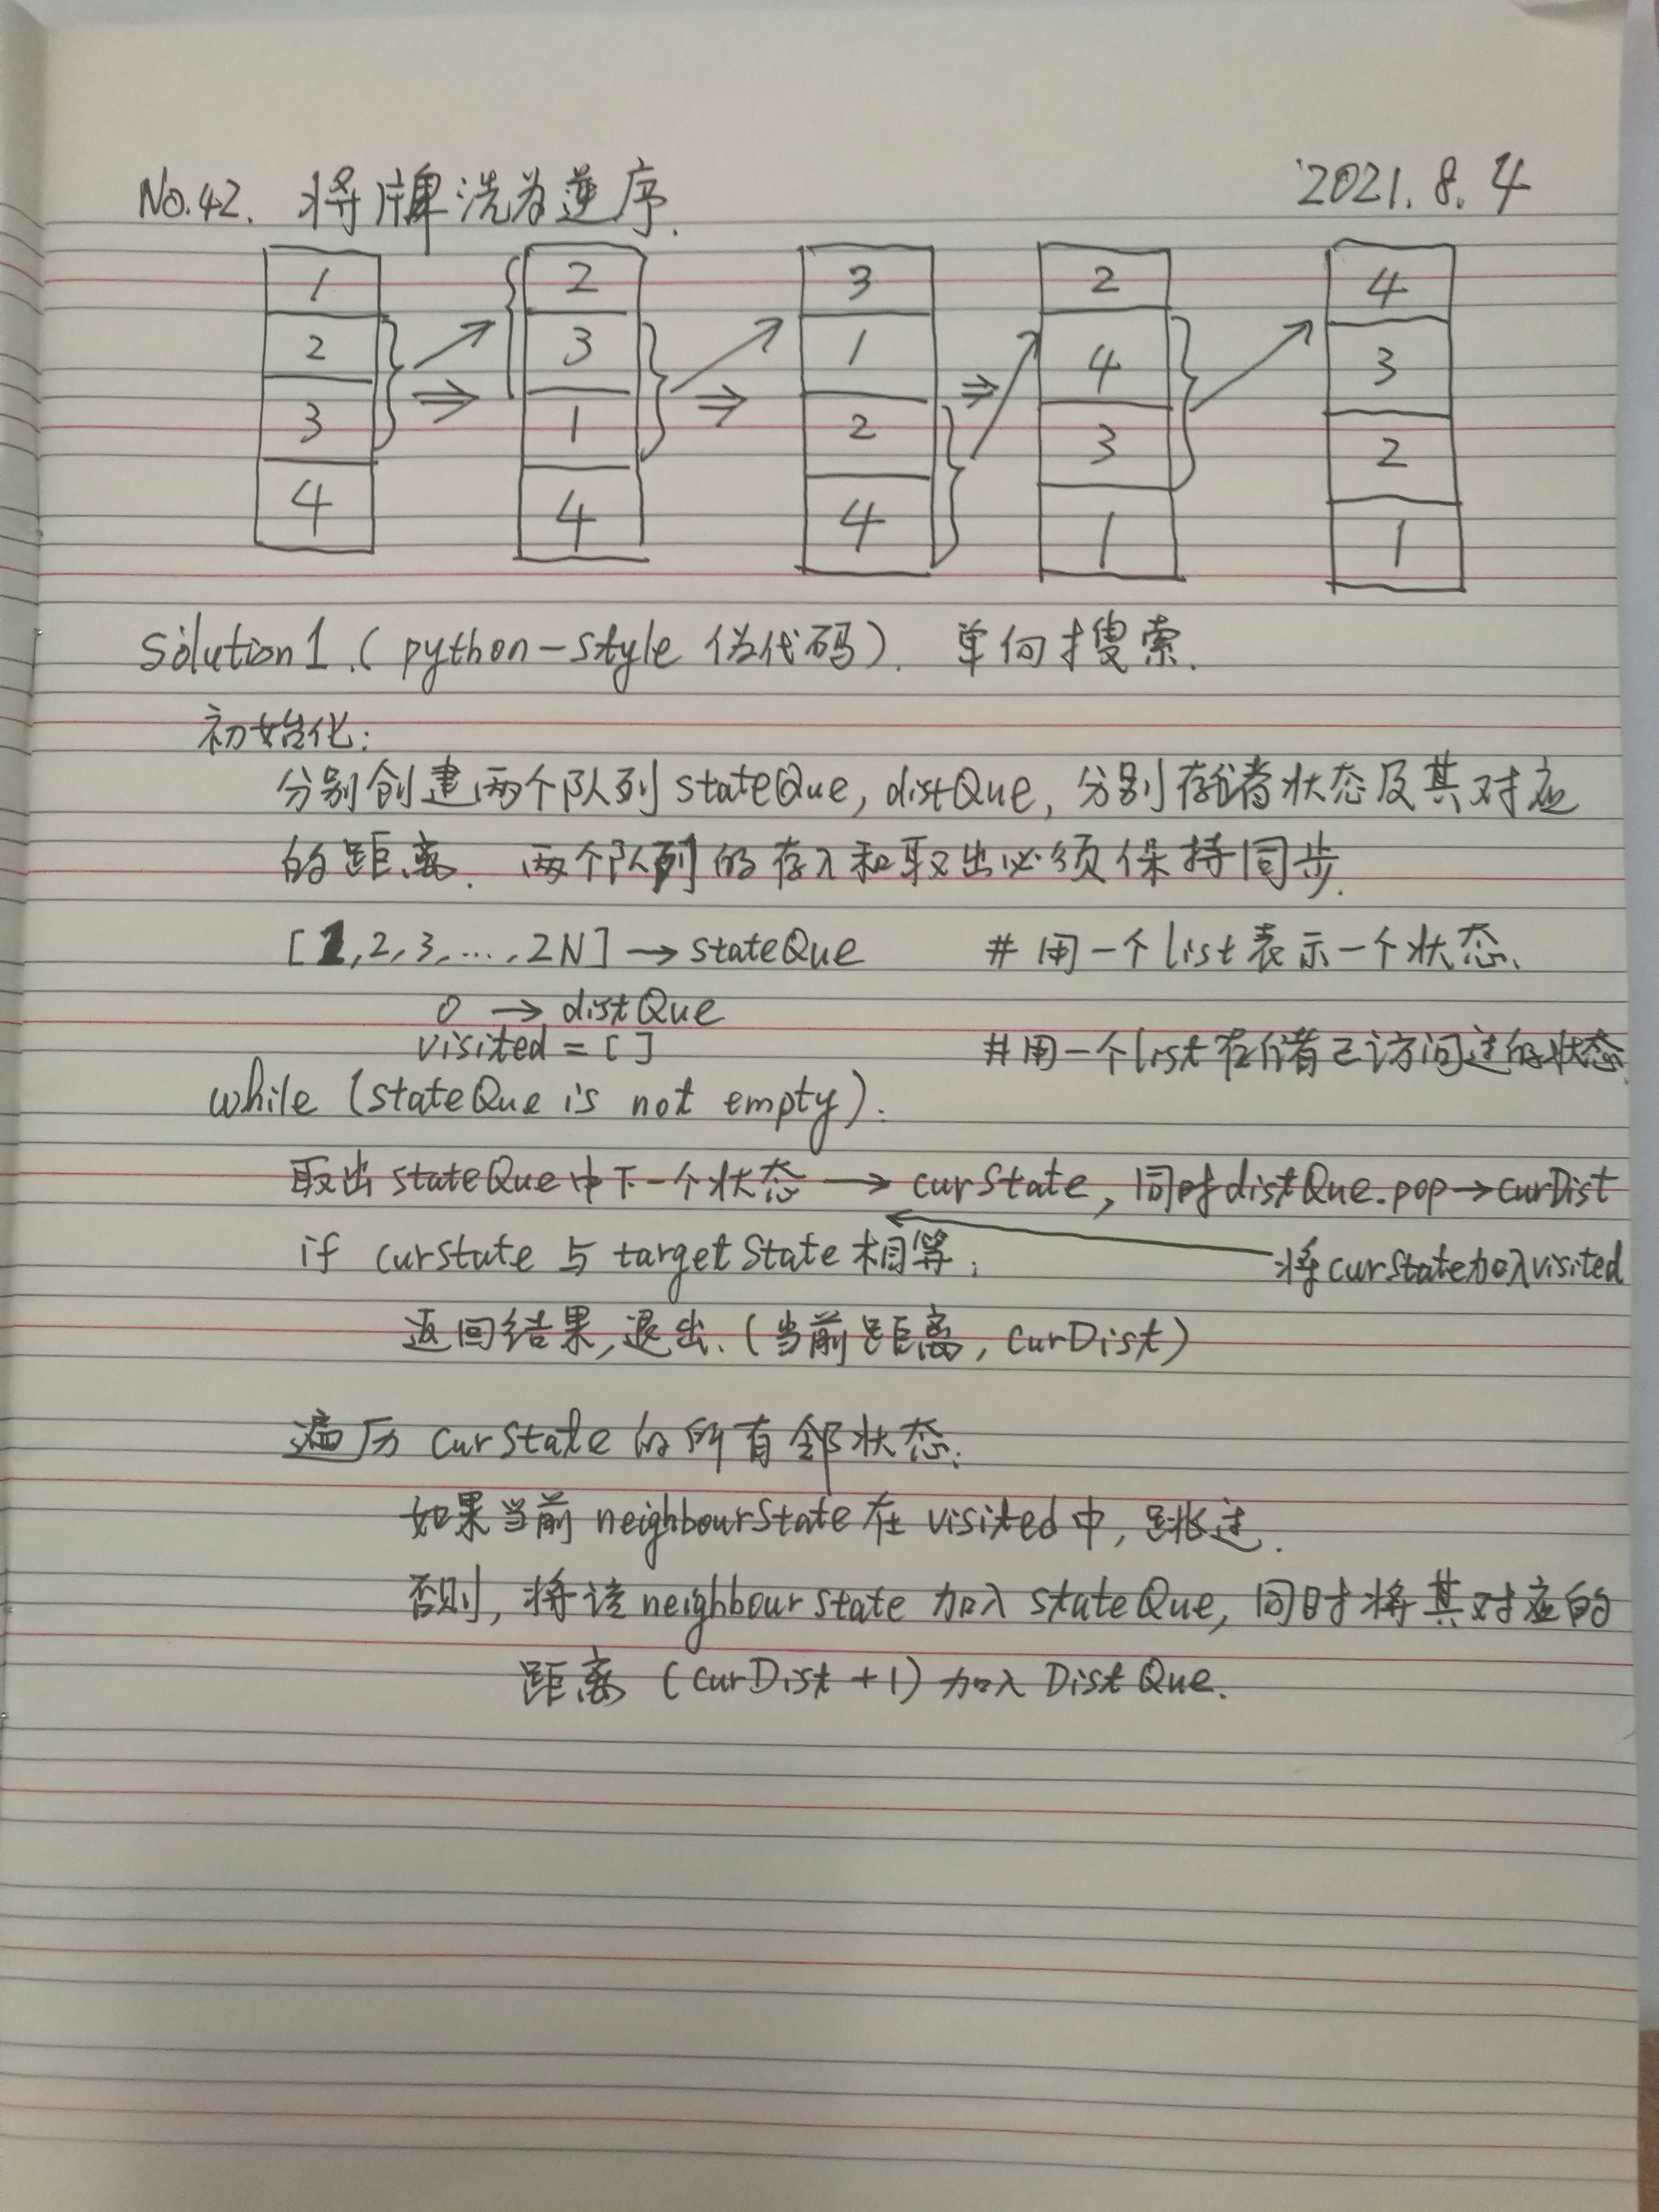 No.42. 将牌洗为逆序. 2021.8.4
1 2 3 2 4
2 3 1 4 3
3 1 2 3 2
4 4 4 1 1
Solution1.(python-style 伪代码). 单向搜索.
初始化:
分别创建两个队列stateQue, distQue, 分别存储着状态及其对应
的距离. 两个队列的存入和取出必须保持同步.
[1,2,3,...,2N]→stateQue # 用一个list表示一个状态.
0 → distQue
visited = [] #用一个list存储着已访问过的状态.
while (stateQue is not empty):
取出stateQue中下一个状态→curState, 同时distQue.pop→curDist
if curstate 与 targetState相等: 将curstate加入visited
返回结果,退出.(当前距离, curDist)
遍历 curState的所有邻状态:
如果当前neighbourState在visited中,跳过.
否则, 将该neighbourstate加入stateQue, 同时将其对应的
距离 (curDist+1)加入DistQue.